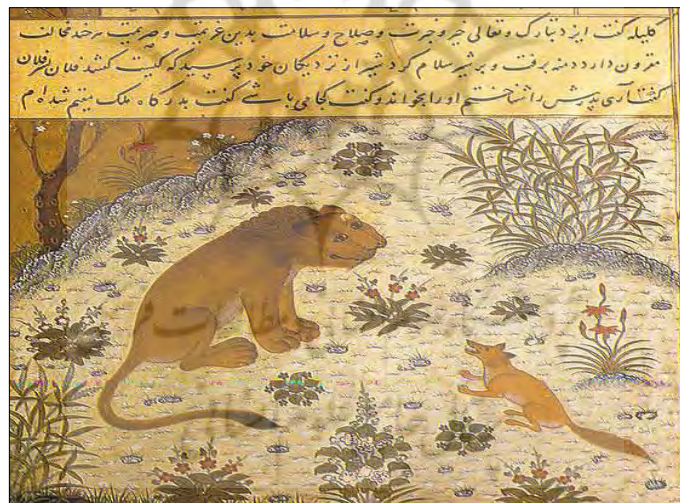 کلیله گفت ایزد تبارک و تعالی خیر و خیرت و صلاح و سلامت بدین عزیمت و صریمت هر خد مخالفت
مقرون دارد دمنه برفت و بر شیر سلام کرد شیر از نزدیکان خود پرسید که کیست گفتند فلان پسر فلان
گفت آری پدرش را شناختم او را بخواند و گفت کجا می باشی گفت بدرگاه ملک مقیم شده ام